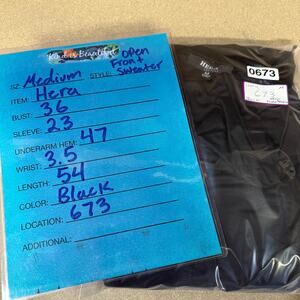 Kind is Beautiful
SZ: Medium STYLE: Open Front Sweater
ITEM: Hera
BUST: 36
SLEEVE: 23
UNDERARM HEM: 47
WRIST: 3.5
LENGTH: 54
COLOR: Black
LOCATION: 673
ADDITIONAL:
HERA
M
0673
673